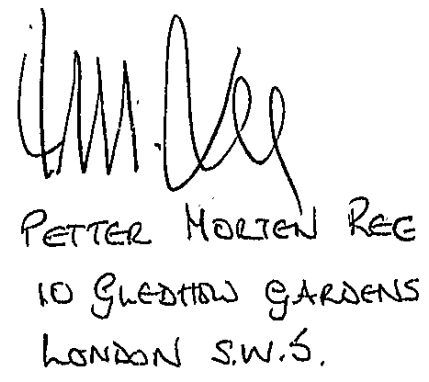 PETTER MORTEN REE
10 GLEDHOW GARDENS
LONDON S.W.5.